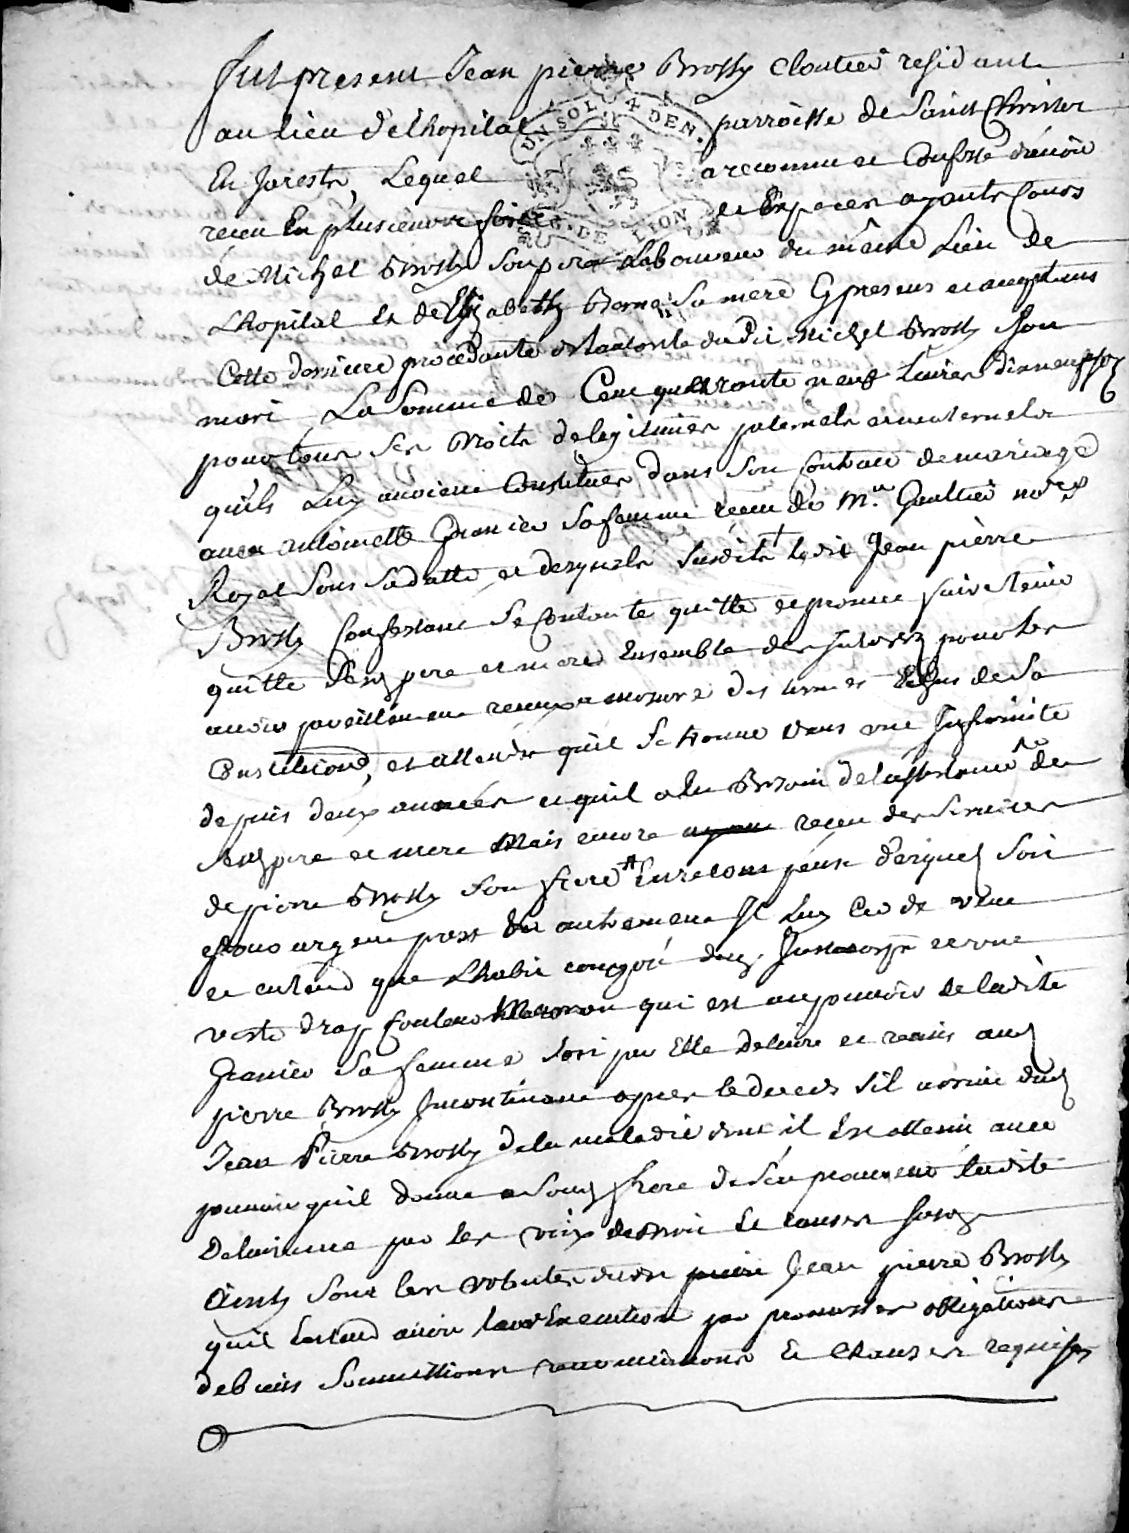 Fut present Jean pierre Brossy Cloutier residant
au lieu de lhopital UN SOL 4 DEN. parroisse de Saint Christo
En Jarests, Lequel a reconnu et Confessé davoir
receu En plusieurs fois G. DE LION et Especes ayants Cours
de Michel Brossy Son pere Laboureur du même Lieu de
Lhopital et de Elizabeth Berne Sa mere Cy presens et acceptans
Cette derniere procédante de lautorite dudit Michel Brossy Son
mari, La Somme de Cent quarante neuf Livres dixneuf sols
pour tous Ses Droits de legitimes paternels et maternels
quils Luy avoient Constitues dans Son Contract de mariage
avec antoinette Granier Sa femme receu de Me. Gaultier nore
Royal Sous Sa datte, et desquels Susdits ledit Jean pierre
Brossy Confessant Se Contente quitte et promet faire tenir
quitte Sesd. pere et mere Ensemble des Interets pour les
avoir pareillement receus a mesure des termes Echus de Sa
Constitution, et attendu quil Se trouve dans une Infirmite
depuis deux années et quil a eu Besoin de lassistance de
Sesd. pere et mere Mais encore ayant receu des Services
de pierre Brossy Son frere En recompense desquels Soit
pour argent prest ou autrement Il Luy Cede veut
et entend que Lhabit
veste drap Couleur Marron qui est au pouvoir de ladite
Granier Sa femme Soit par Elle delivré et remis aud
pierre Brossy Incontinant apres le deceds Sil arrive dud
Jean Pierre Brossy de la maladie dont il Est atteint avec
pouvoir quil donne a Sond. frere de ladite
Delivrance par les voix de Droit Et Causes
Ainsy Sont les volontes dudit Jean pierre Brossy
quil Entend avoir Execution par promesses obligations
de biens Soummissions renonciations Et Clauses requises